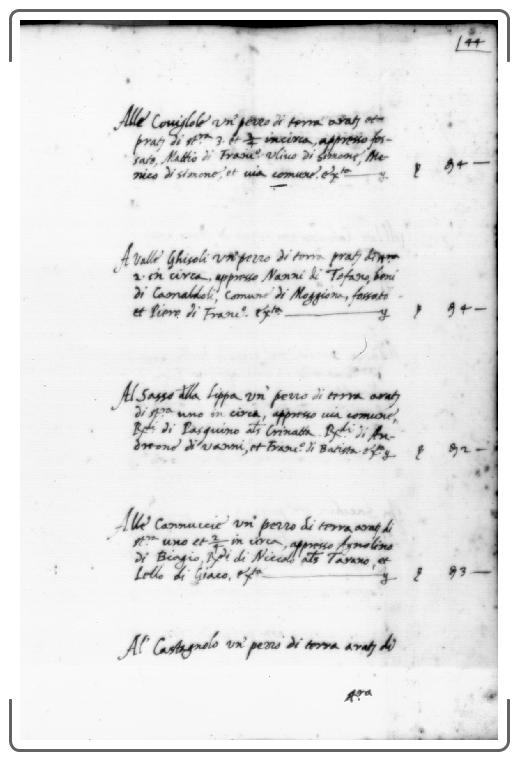 144
Alle Coviglole un' pezzo di terra aratj et
pratj di st.ra 3. et in circa, appresso fos-
sato, Mattio di Franc.o Ulivo di Simone, Me-
nico di simone, et via comune. 4 —
A valle Ghisoli un' pezzo di terra pratj di st.ra
2. in circa, appresso Nanni di Tofano, beni
di Camaldoli, Comune di Moggiona, fossato
et Piero di Franc.o 4 —
Al Sasso alla Lippa un' pezzo di terra aratj
di st.ra uno in circa, appresso via comune,
di Pasquino als Crinatta di An-
dreone di Vanni, et Franc.o di Batista 2 —
Alle Cannuccie un' pezzo di terra aratj di
st.ra uno et in circa, appresso Agnolino
di Biagio, di Niccolo als Tarano, et
Lello di Giaco. 3 —
Al' Castagnolo un' pezzo di terra aratj di
st.ra